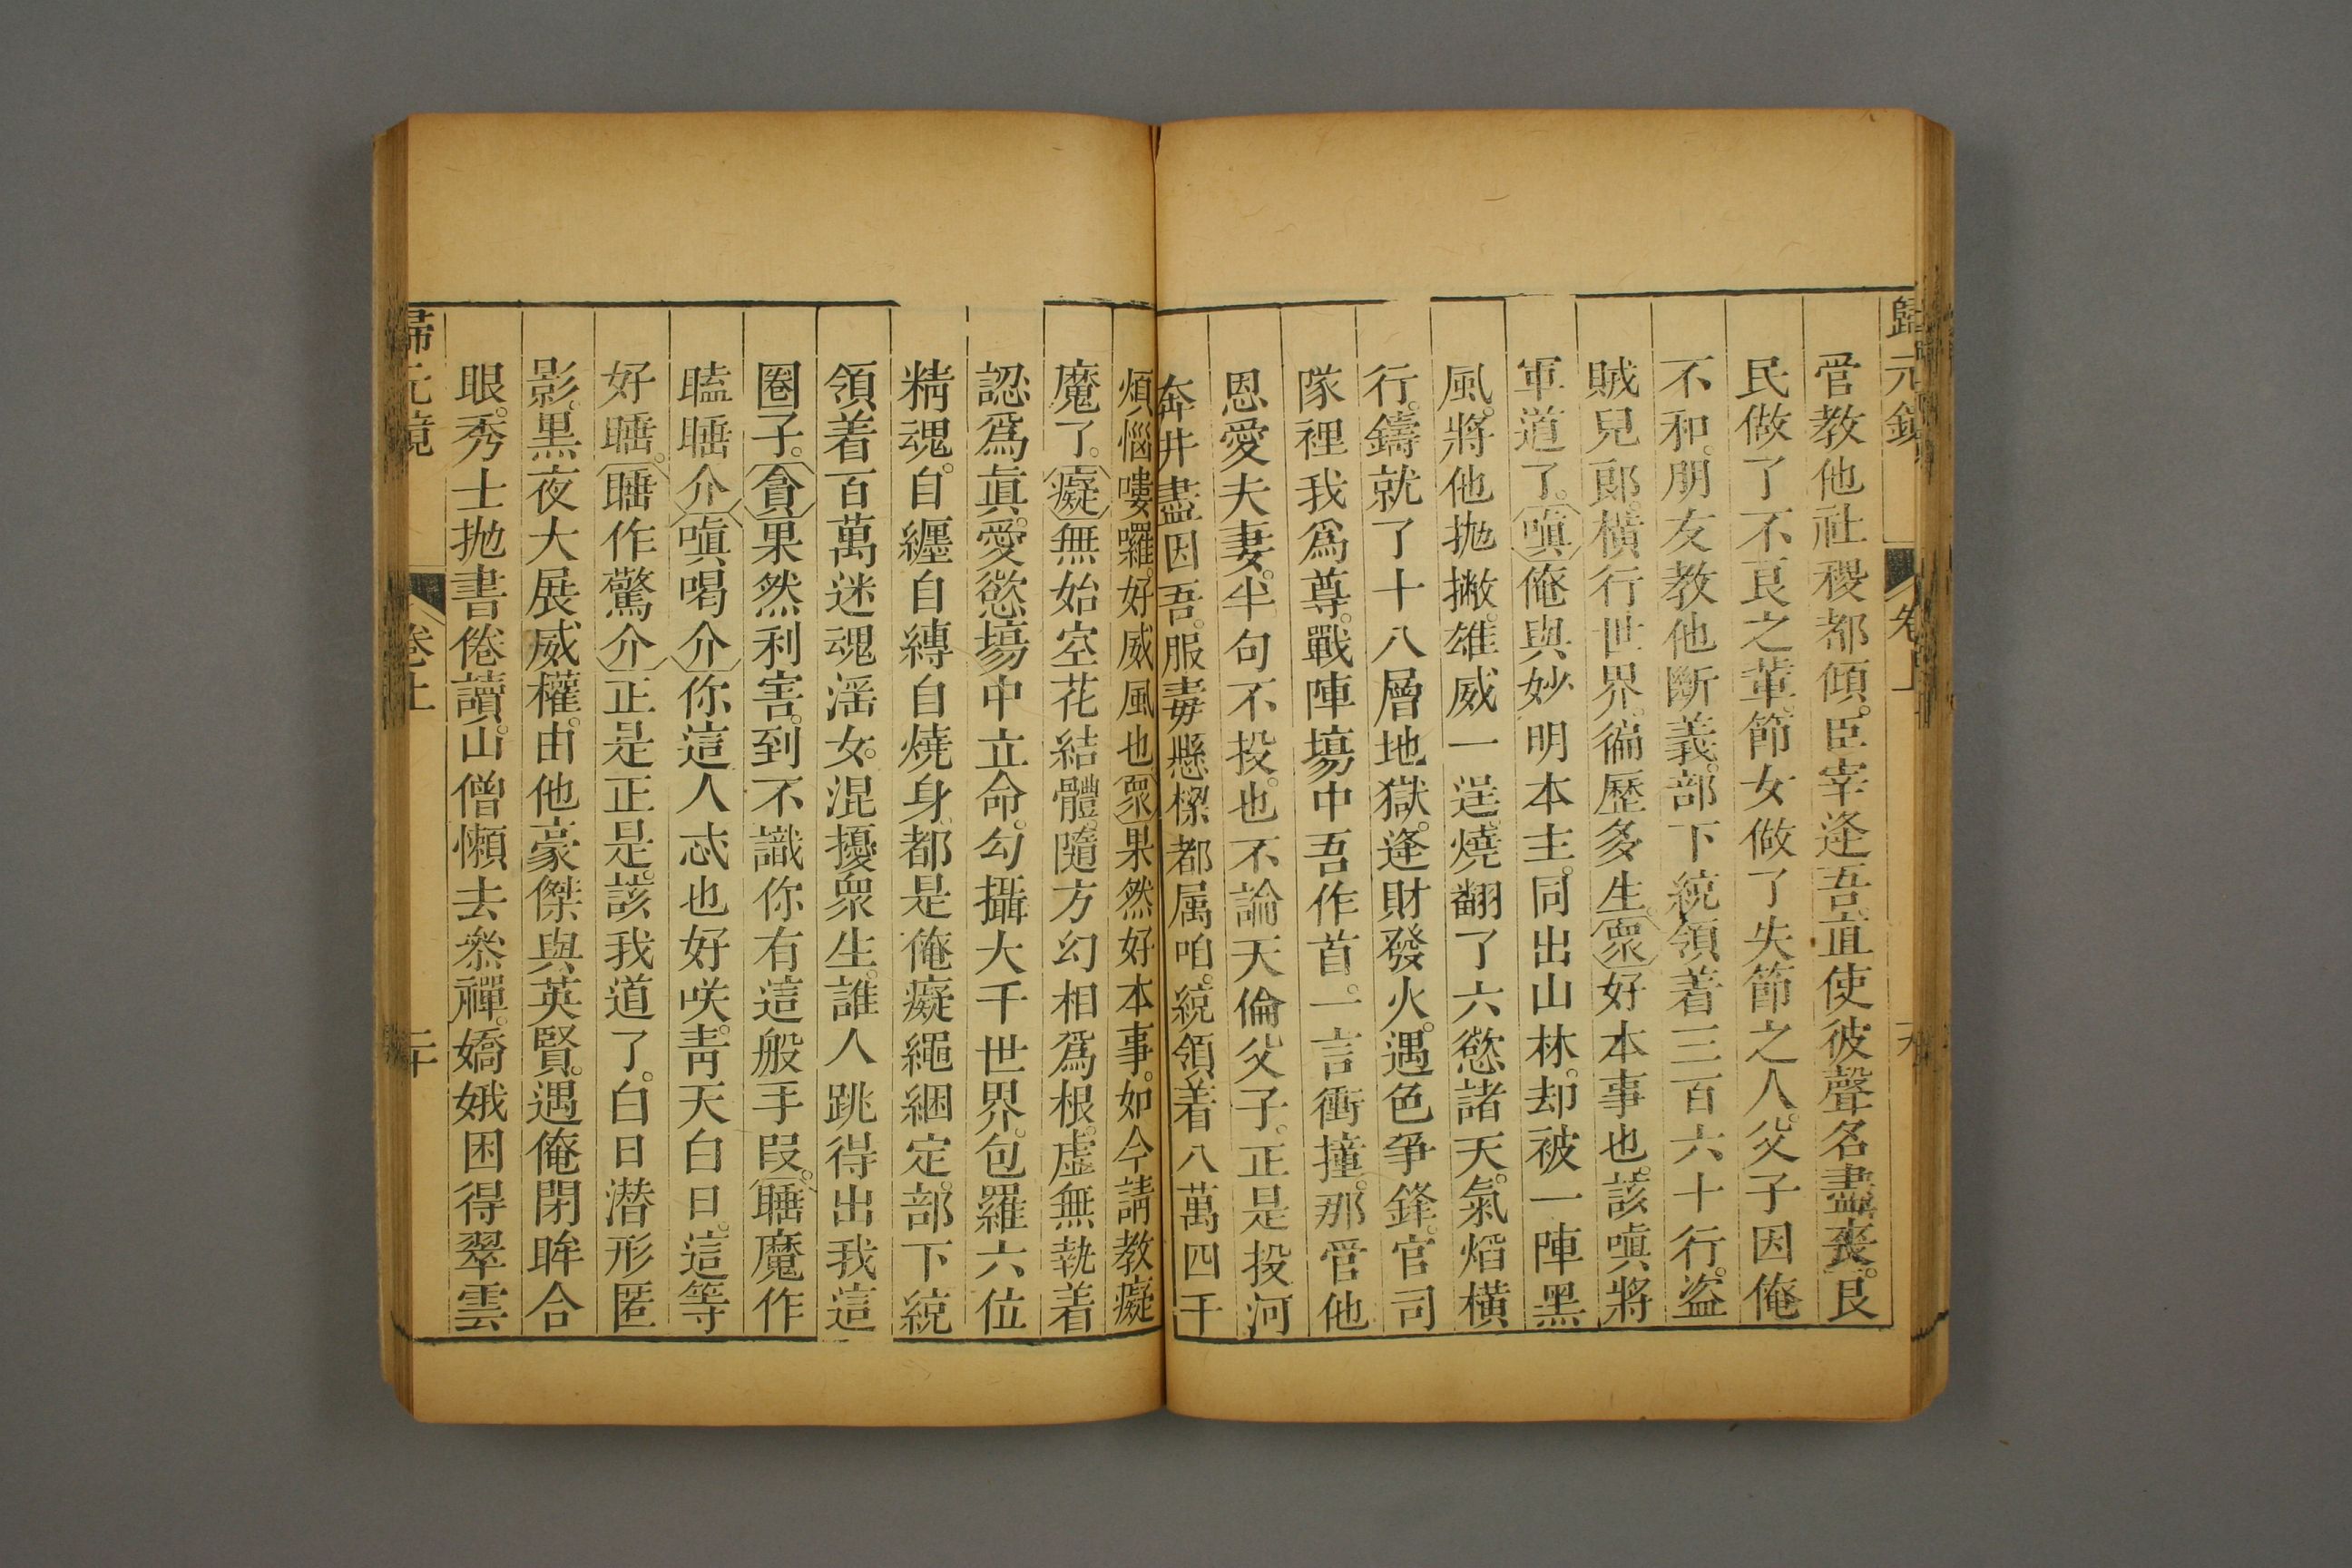 歸元鏡 卷上
管教他社稷都傾。臣宰逢吾。直使彼聲名盡喪。良
民做了不良之輩。節女做了失節之人。父子因俺
不和。朋友教他斷義。部下統領着三百六十行。盜
賊兒郎。橫行世界。徧歷多生。衆好本事也。該嗔將
軍道了。嗔俺與妙明本主。同出山林。却被一陣黑
風。將他抛撇。雄威一逞。燒翻了六慾諸天。氣焰橫
行。鑄就了十八層地獄。逢財發火。遇色爭鋒。官司
隊裡我爲尊。戰陣塲中吾作首。一言衝撞。那管他
恩愛夫妻。半句不投。也不論天倫父子。正是投河
奔井盡因吾。服毒懸樑都属咱。統領着八萬四千
煩惱嘍囉。好威風也衆果然好本事。如今請教癡
魔了。癡無始空花結體。隨方幻相爲根。虛無執着
認爲眞。愛慾塲中立命。勾攝大千世界。包羅六位
精魂。自纒自縛自燒身。都是俺癡繩綑定。部下統
領着百萬迷魂滛女。混擾衆生。誰人跳得出我這
圈子。貪果然利害。到不識你有這般手段。睡魔作
瞌睡介嗔喝介你這人忒也好咲。靑天白日。這等
好睡。睡作驚介正是正是。該我道了。白日潜形匿
影。黒夜大展威權。由他豪傑與英賢。遇俺閉眸合
眼。秀士抛書倦讀。山僧懶去叅禪。嬌娥困得翠雲
歸元鏡 卷上 二十